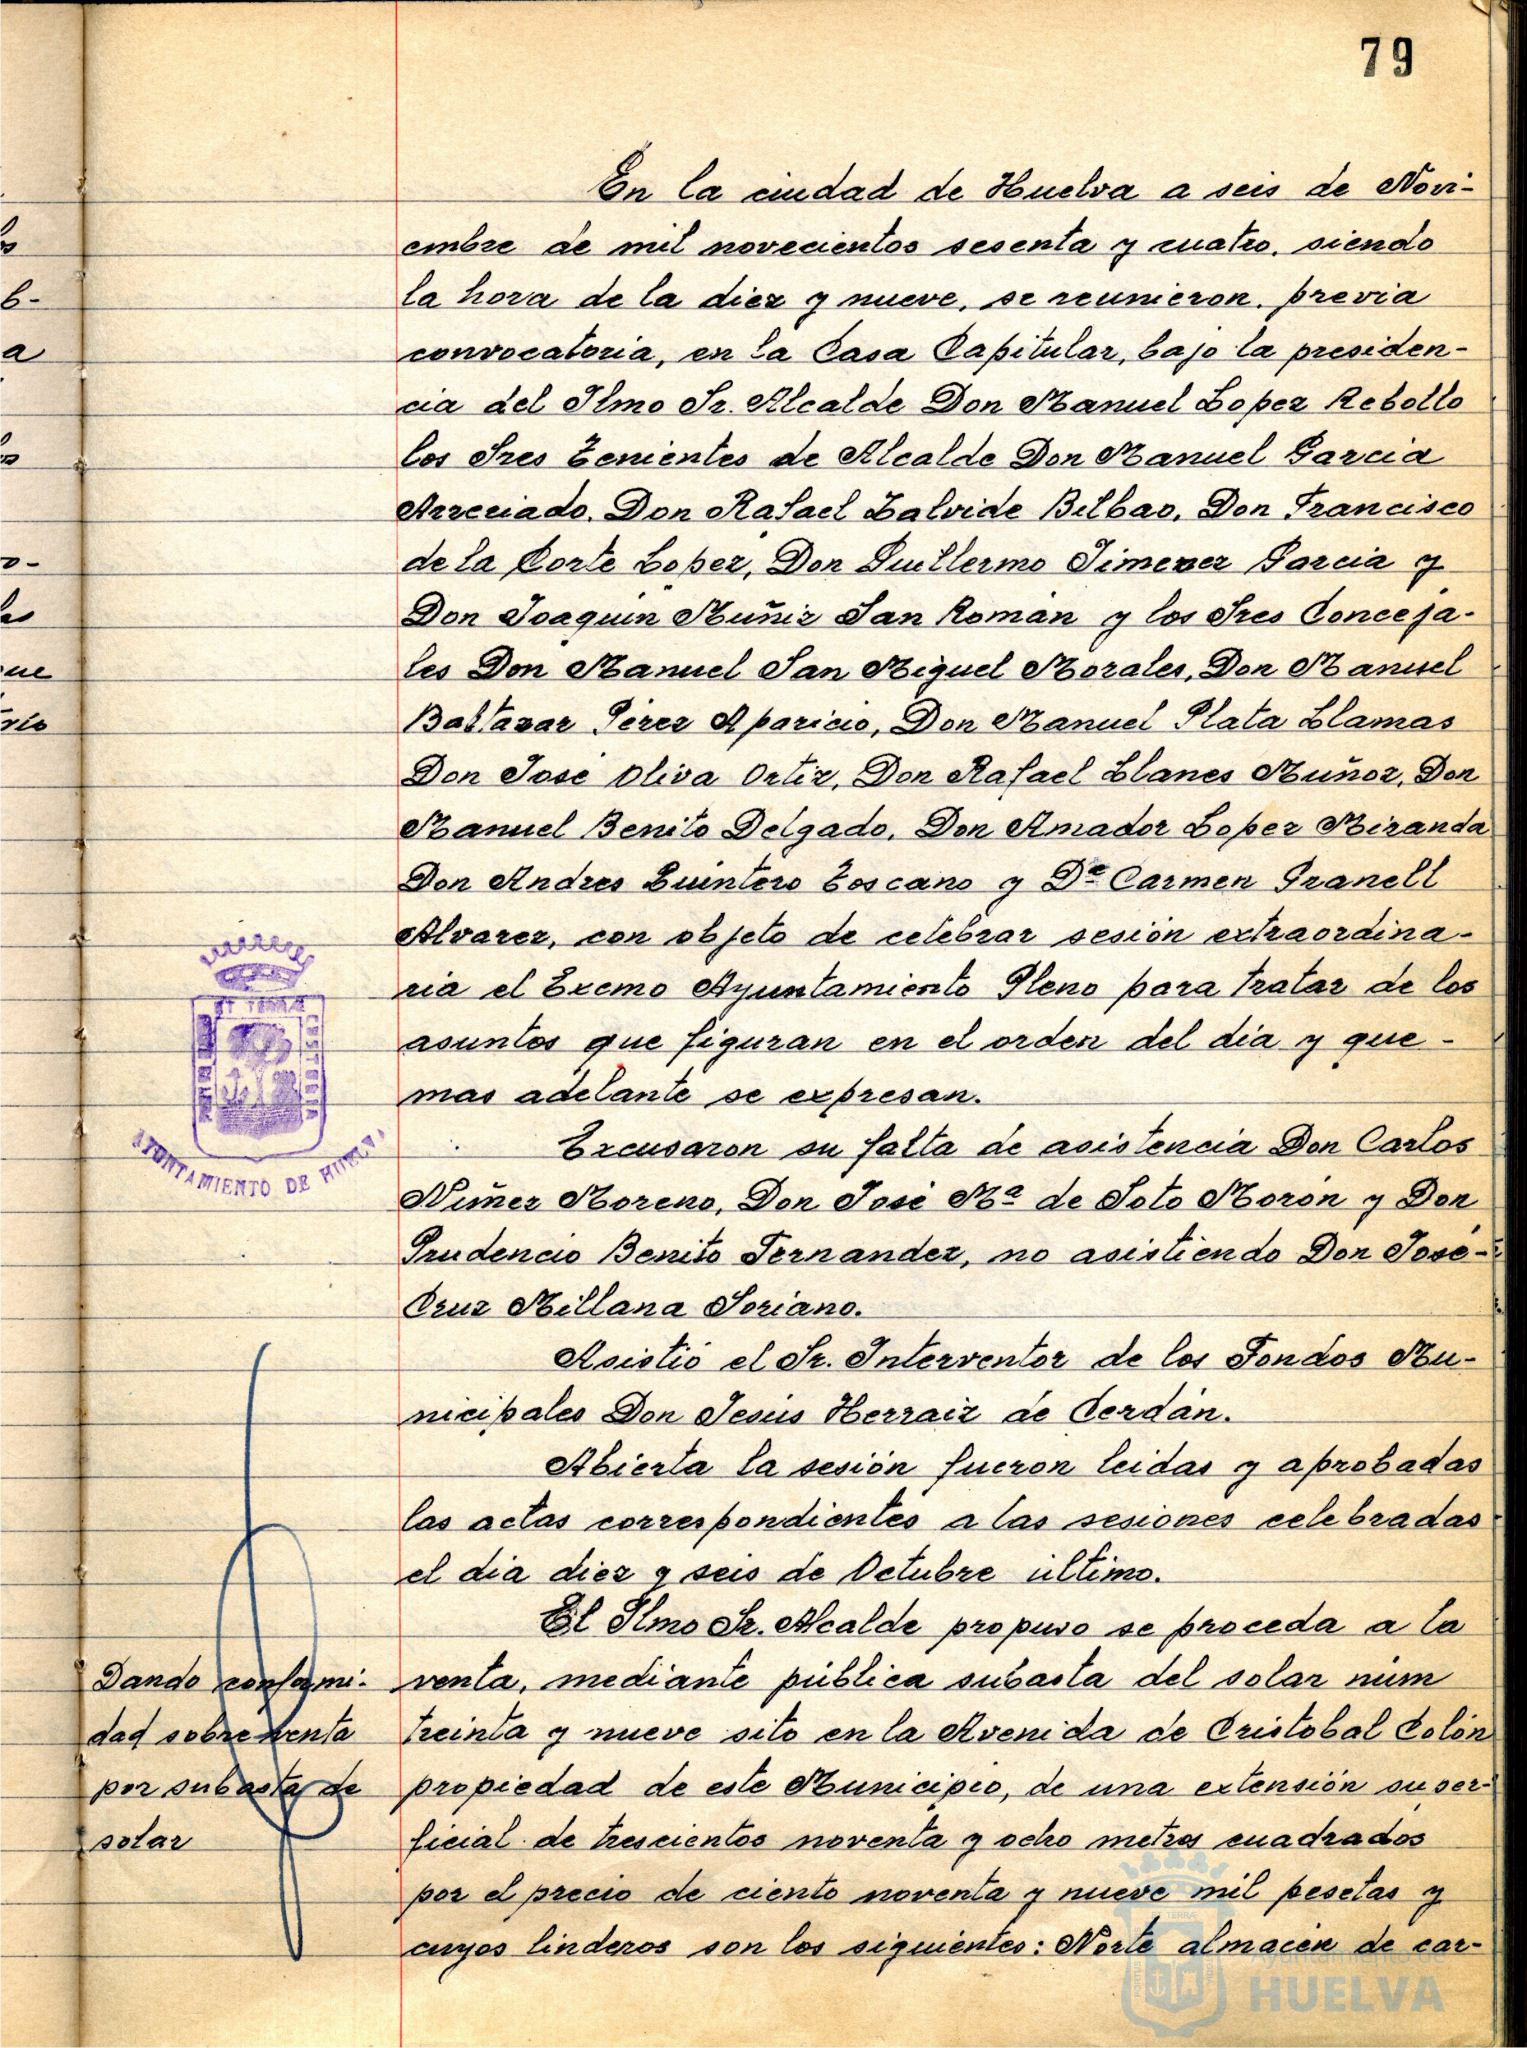 79
En la ciudad de Huelva a seis de Novi-
embre de mil novecientos sesenta y cuatro, siendo
la hora de la diez y nueve, se reunieron, previa
convocatoria, en la Casa Capitular, bajo la presiden-
cia del Ilmo Sr. Alcalde Don Manuel Lopez Rebollo
los Sres Tenientes de Alcalde Don Manuel Garcia
Arreciado, Don Rafael Zalvide Bilbao, Don Francisco
de la Corte Lopez, Don Guillermo Jimenez Garcia y
Don Joaquin Muñiz San Román y los Sres Conceja-
les Don Manuel San Miguel Morales, Don Manuel
Baltasar Pérez Aparicio, Don Manuel Plata Llamas
Don José Oliva Ortiz, Don Rafael Llanes Muñoz, Don
Manuel Benito Delgado, Don Amador Lopez Miranda
Don Andres Quintero Toscano y Dª Carmen Granell
Alvarez, con objeto de celebrar sesión extraordina-
ria el Excmo Ayuntamiento Pleno para tratar de los
asuntos que figuran en el orden del dia y que -
mas adelante se expresan.
Excusaron su falta de asistencia Don Carlos
Nuñez Moreno, Don José Mª de Soto Morón y Don
Prudencio Benito Fernandez, no asistiendo Don José-
Cruz Millana Soriano.
Asistió el Sr. Interventor de los Fondos Mu-
nicipales Don Jesús Herraiz de Cerdán.
Abierta la sesión fueron leidas y aprobadas
las actas correspondientes a las sesiones celebradas
el dia diez y seis de Octubre último.
El Ilmo Sr. Alcalde propuso se proceda a la
venta, mediante pública subasta del solar núm
treinta y nueve sito en la Avenida de Cristobal Colón
propiedad de este Municipio, de una extensión super-
ficial de trescientos noventa y ocho metros cuadrados
por el precio de ciento noventa y nueve mil pesetas y
cuyos linderos son los siguientes: Norte almacén de car-
Dando conformi-
dad sobre venta
por subasta de
solar
AYUNTAMIENTO DE HUELVA
Ayuntamiento de
HUELVA